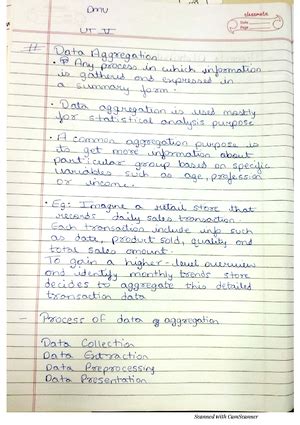 Dmu
classmate
Date
Page
UT-V
# Data Aggregation
• Any process in which information
is gathered and expressed in
a summary form.
• Data aggregation is used mostly
for statistical analysis purpose
• A common aggregation purpose is
to get more information about
particular group based on specific
variables such as age, profession
or income.
• Eg: Imagine a retail store that
records daily sales transaction.
Each transaction include info such
as date, product sold, quality and
total sales amount.
To gain a higher-level overview
and identify monthly trends store
decides to aggregate this detailed
transaction data
- Process of data aggregation
Data Collection
Data Extraction
Data Preprocessing
Data Presentation
Scanned with CamScanner